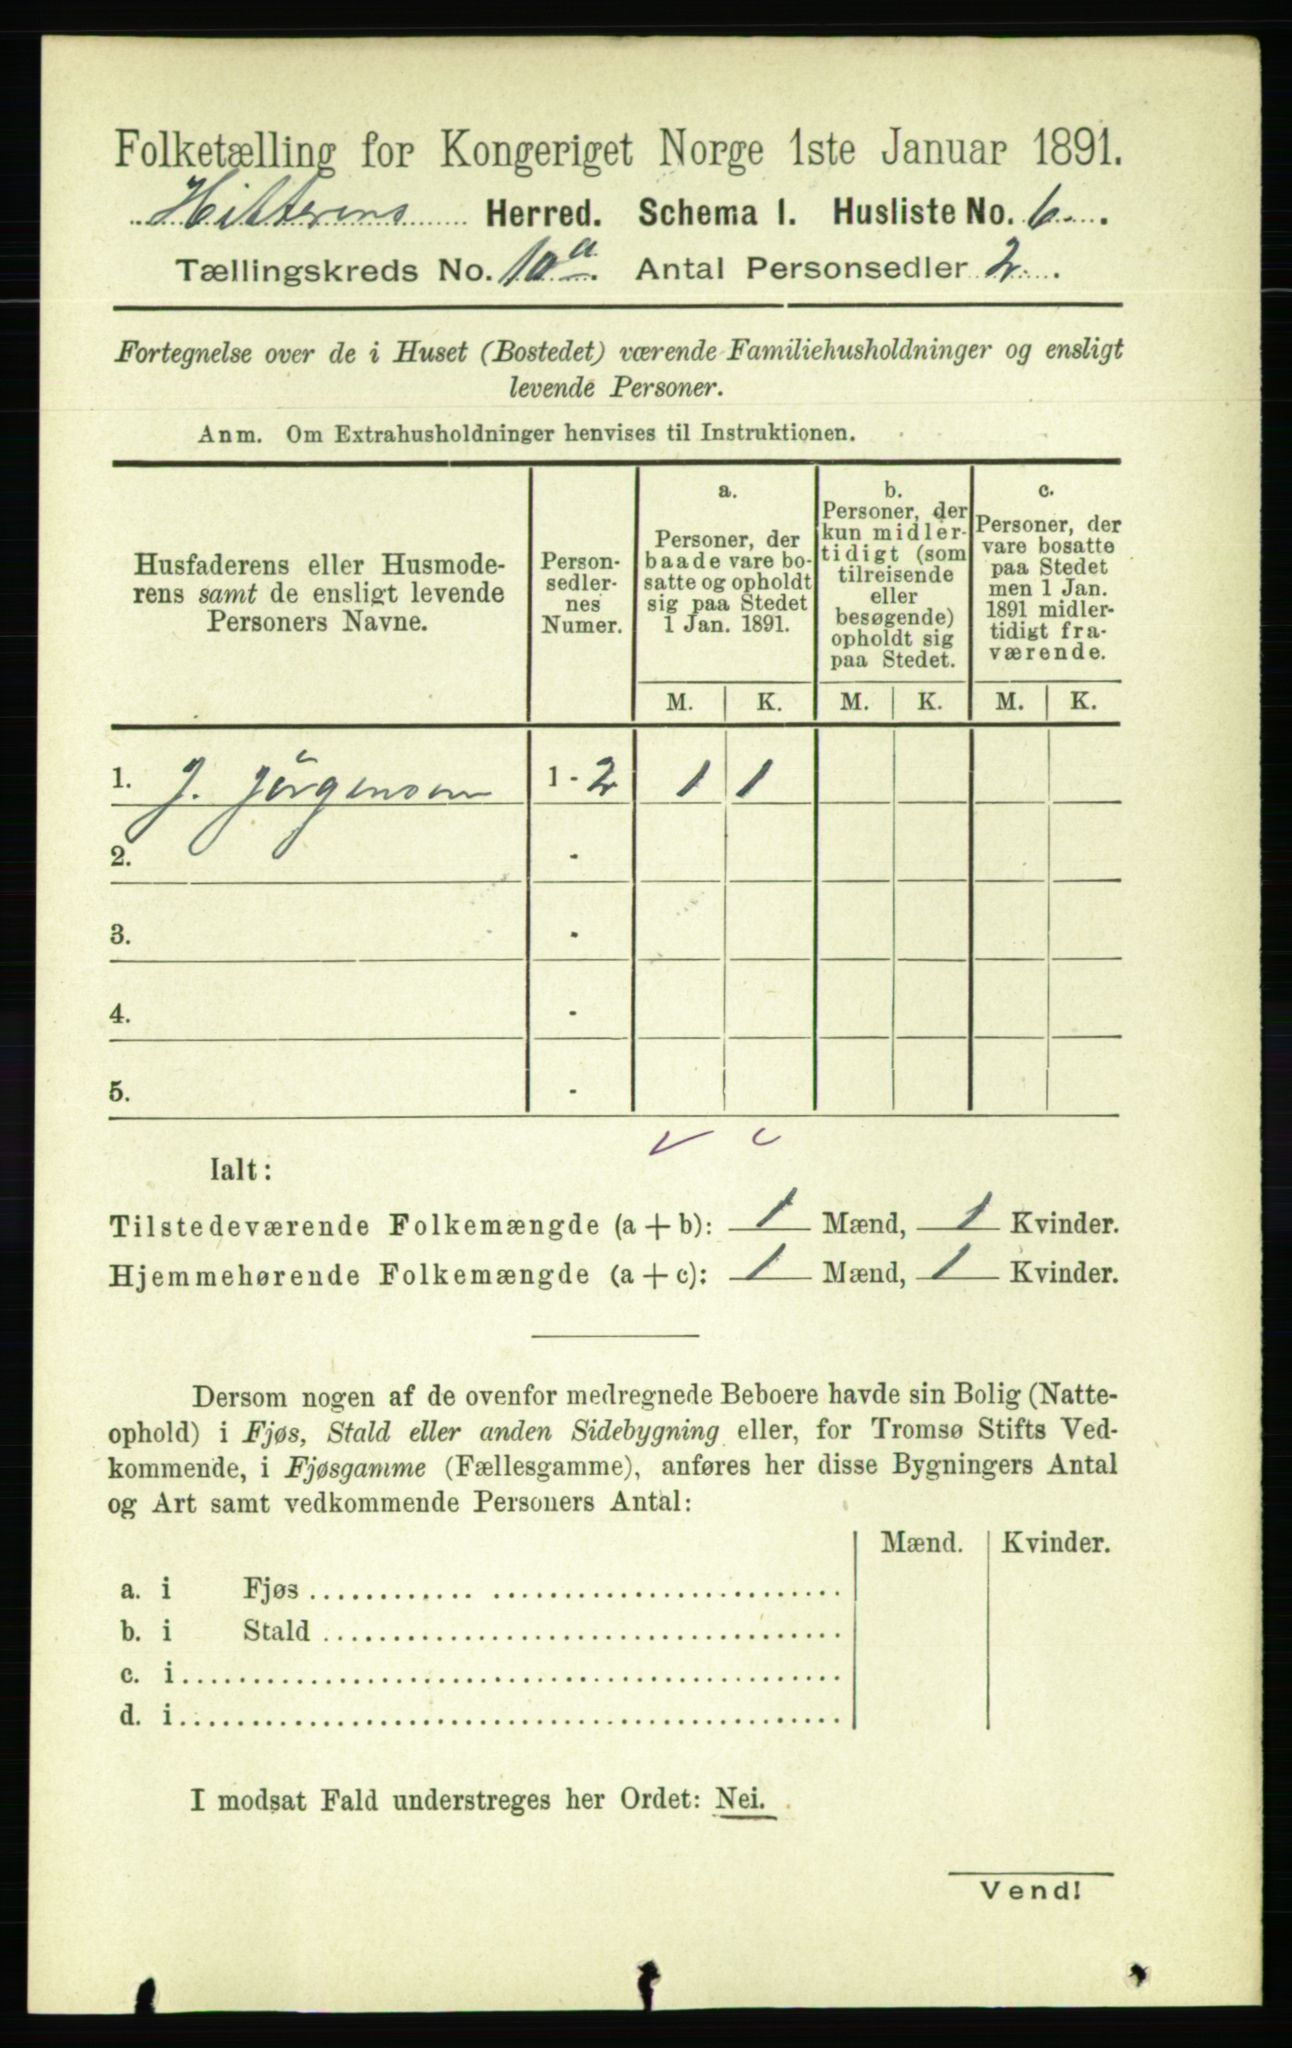 Folketælling for Kongeriget Norge 1ste Januar 1891.
Hitterens Herred. Schema I. Husliste No. 6.
Tællingskreds No. 10a. Antal Personsedler 2.
Fortegnelse over de i Huset (Bostedet) værende Familiehusholdninger og ensligt
levende Personer.
Anm. Om Extrahusholdninger henvises til Instruktionen.
Husfaderens eller Husmode-
rens samt de ensligt levende
Personers Navne.
Person-
sedler-
nes
Numer.
a.
Personer, der
baade vare bo-
satte og opholdt
sig paa Stedet
1 Jan. 1891.
b.
Personer, der
kun midler-
tidigt (som
tilreisende
eller
besøgende)
opholdt sig
paa Stedet.
c.
Personer, der
vare bosatte
paa Stedet
men 1 Jan.
1891 midler-
tidigt fra-
værende.
M. K. M. K. M. K.
1. J. Jörgensen 1 - 2 1 1
2. -
3. -
4. -
5. -
Ialt:
Tilstedeværende Folkemængde (a + b): 1 Mænd, 1 Kvinder.
Hjemmehørende Folkemængde (a + c): 1 Mænd, 1 Kvinder.
Dersom nogen af de ovenfor medregnede Beboere havde sin Bolig (Natte-
ophold) i Fjøs, Stald eller anden Sidebygning eller, for Tromsø Stifts Ved-
kommende, i Fjøsgamme (Fællesgamme), anføres her disse Bygningers Antal
og Art samt vedkommende Personers Antal:
Mænd. Kvinder.
a. i Fjøs
b. i Stald
c. i
d. i
I modsat Fald understreges her Ordet: Nei.
Vend!